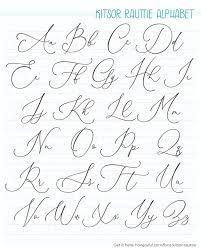 KITSOR RAUTTIE ALPHABET
Aa Bb Cc Dd
Ee Ff Gg Hh
Ii Jj Kk Ll Mm
Nn Oo Pp Qq
Rr Ss Tt Uu
Vv Ww Xx Yy Zz
Get it here: